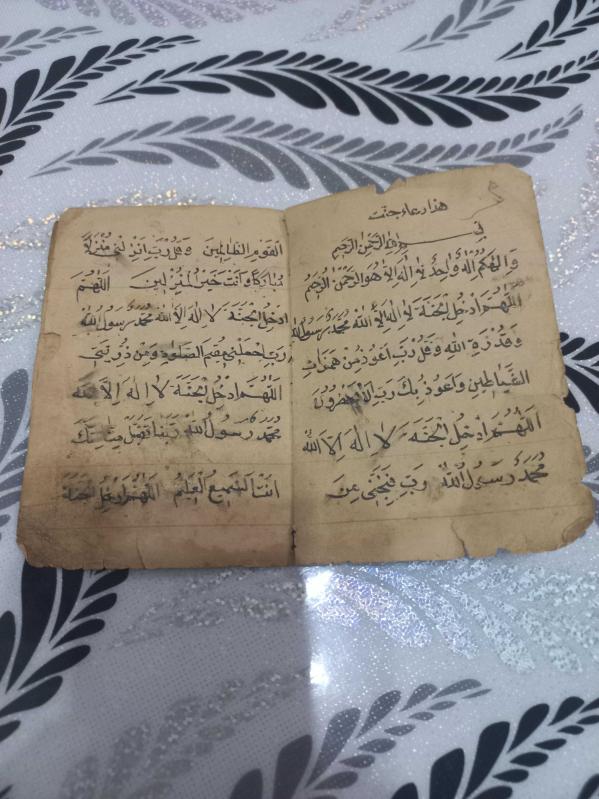 هذا دعاء جنت
بسم الله الرحمن الرحيم
وَاِلٰهُكُمْ اِلٰهٌ وَاحِدٌ لَا اِلٰهَ اِلَّا هُوَ الرَّحْمٰنُ الرَّحِيمُ
اَللّٰهُمَّ ادْخُلِ الْجَنَّةَ لَا اِلٰهَ اِلَّا اللّٰهُ مُحَمَّدٌ رَسُولُ اللّٰهِ
الله وَقُلْ رَبِّ اَعُوذُ مِنْ هَمَزَاتِ
الشَّيَاطِينِ وَاَعُوذُ بِكَ رَبِّ يَحْضُرُونَ
اَللّٰهُمَّ ادْخُلِ الْجَنَّةَ لَا اِلٰهَ اِلَّا اللّٰهُ
مُحَمَّدٌ رَسُولُ اللّٰهِ رَبِّ فَنَجِّنِي مِنَ
الْقَوْمِ الظَّالِمِينَ وَقُلْ رَبِّ اَنْزِلْنِي مُنْزَلًا
مُبَارَكًا وَاَنْتَ خَيْرُ الْمُنْزِلِينَ اَللّٰهُمَّ
ادْخُلِ الْجَنَّةَ لَا اِلٰهَ اِلَّا اللّٰهُ مُحَمَّدٌ رَسُولُ اللّٰهِ
رَبِّ اجْعَلْنِي مُقِيمَ الصَّلٰوةِ وَمِنْ ذُرِّيَّتِي
اَللّٰهُمَّ ادْخُلِ الْجَنَّةَ لَا اِلٰهَ اِلَّا اللّٰهُ
مُحَمَّدٌ رَسُولُ اللّٰهِ رَبَّنَا تَقَبَّلْ مِنَّا اِنَّكَ
اَنْتَ السَّمِيعُ الْعَلِيمُ اَللّٰهُمَّ ادْخُلِ الْجَنَّةَ